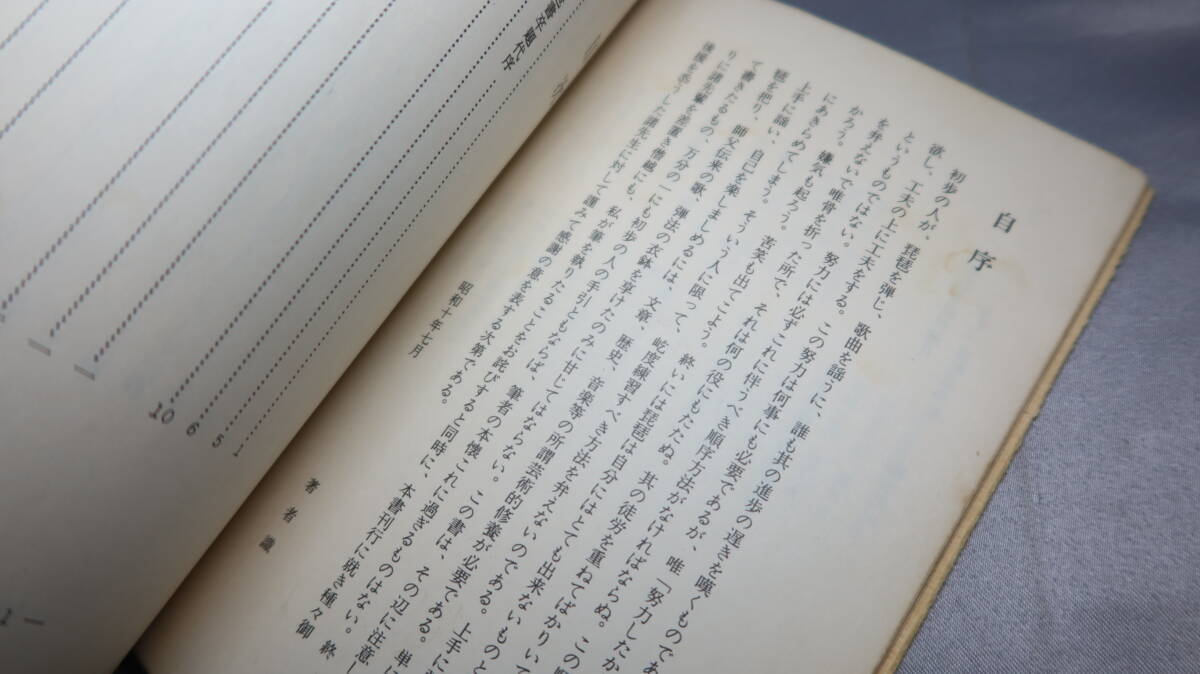 自序
初歩の人が、琵琶を弾じ、歌曲を謡うに、誰も其の進歩の遅きを嘆くものであ
欲し、工夫の上に工夫をする。この努力は何事にも必要であるが、唯「努力したか
というものではない。努力には必ずこれに伴うべき順序方法がなければならぬ。この
を弁えないで唯骨を折った所で、それは何の役にもたたぬ。其の徒労を重ねてばかりい
かろう。嫌気も起ろう。苦笑も出てこよう。終いには琵琶は自分にはとても出来ないものと
にあきらめてしまう。そういう人に限って、屹度練習すべき方法を弁えないのである。上手に
上手に謡い、自己を楽しましめるには、文章、歴史、音楽等の所謂芸術的修養が必要である。単に
琵を把り、師父伝来の歌、弾法の衣鉢を享けたのみに甘じてはならない。この書は、その辺に注意し
て書きたるもの、万分の一にも初歩の人の手引ともならば、筆者の本懐これに過ぎるものはない。終
りに諸先輩を差置き僭越にも、私が筆を執りたることをお詫びすると同時に、本書刊行に就き種々御
後援を忝うした諸先生に対して謹みて感謝の意を表する次第である。
昭和十年七月
著者識
1
5
6
10
代序
1